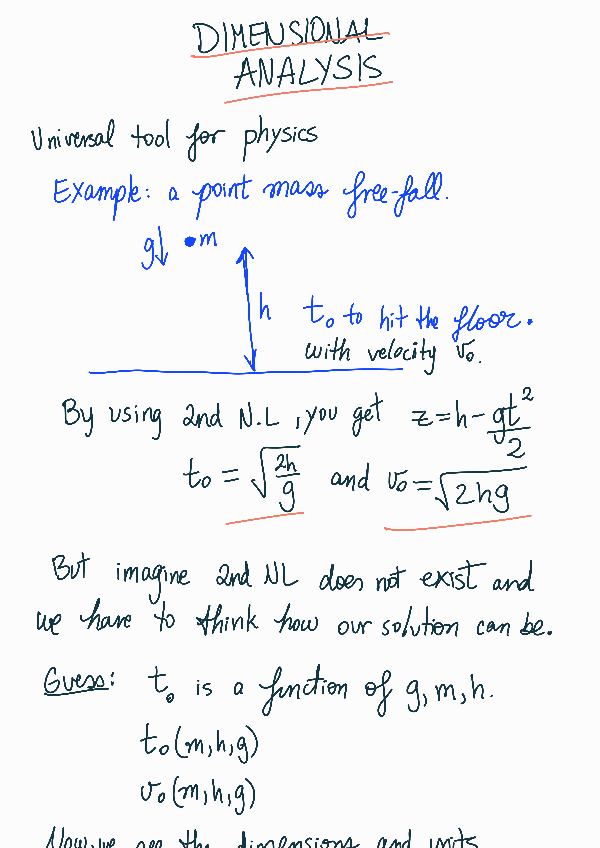 DIMENSIONAL
ANALYSIS
Universal tool for physics
Example: a point mass free-fall.
g↓ •m
h
t₀ to hit the floor.
with velocity v₀.
By using 2nd N.L, you get z = h - gt²/2
t₀ = √(2h/g) and v₀ = √2hg
But imagine 2nd NL does not exist and
we have to think how our solution can be.
Guess: t₀ is a function of g, m, h.
t₀(m,h,g)
v₀(m,h,g)
Now, we see the dimensions and units